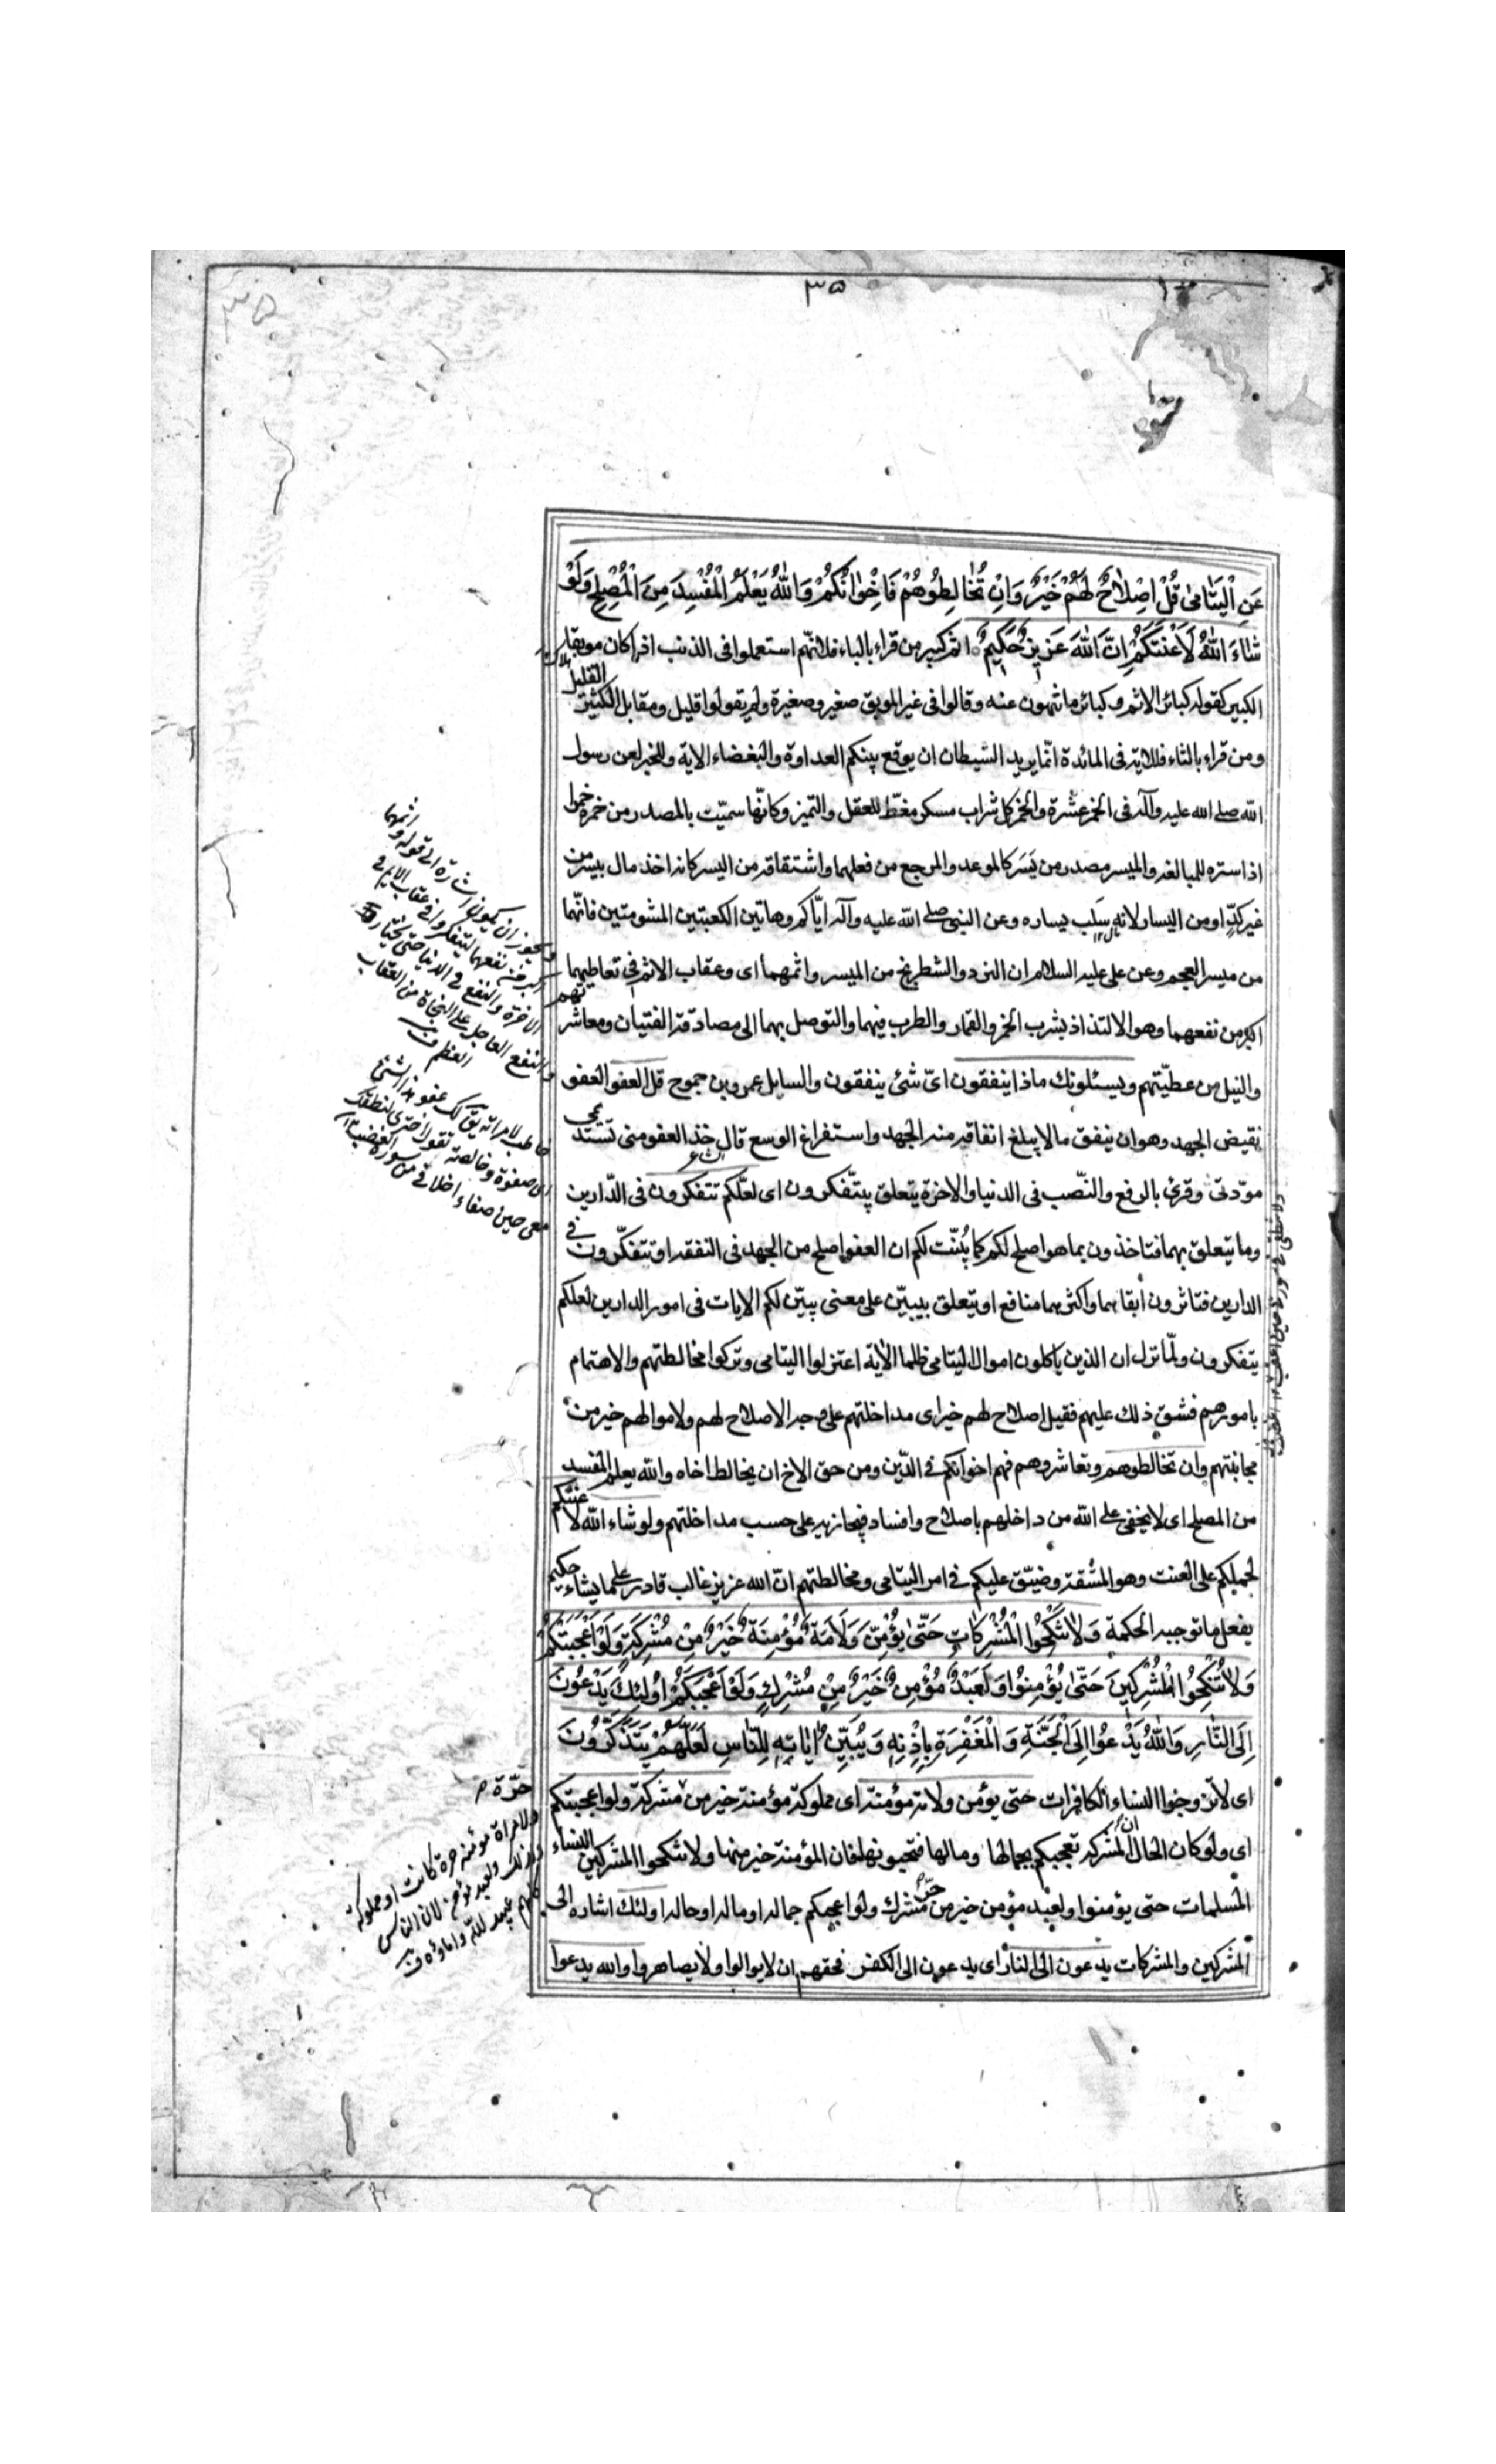 ٣٥
عَنِ الْيَتَامىٰ قُلْ اِصْلاٰحٌ لَهُمْ خَيْرٌ وَاِنْ تُخٰالِطُوهُمْ فَاِخْوٰانُكُمْ وَاللهُ يَعْلَمُ الْمُفْسِدَ مِنَ الْمُصْلِحِ وَلَوْ
شٰاءَ اللهُ لَاَعْنَتَكُمْ اِنَّ اللهَ عَزِيزٌ حَكِيمٌ اثم كبير من قراء بالباء فلانّهم استعملوا فى الذنب اذا كان موبقا
الكبير كقوله كبائر الاثم وكبائر ما تنهون عنه وقالوا فى غير الموبق صغير وصغيرة ولم يقولوا قليل ومقابل الكثير القليل
ومن قراء بالثاء فللاية فى المائدة انّما يريد الشيطان ان يوقع بينكم العداوة والبغضاء الاية وللخبر لعن رسول
الله صلى الله عليه وآله فى الخمر عشرة والخمر كل شراب مسكر مغطّ للعقل والتميز وكانّها سميّت بالمصدر من خمره خمرا
اذا ستره للمبالغة والميسر مصدر من يَسَر كالموعد والمرجع من فعلهما واشتقاقه من اليسر كانه اخذ مال بيسر من
غير كدّ او من اليسار لانه سَلب يساره وعن النبى صلى الله عليه وآله ايّاكم وهاتين الكعبتين المشومتين فانّهما
من ميسر العجم وعن على عليه السلام ان النرد والشطرنج من الميسر واثمهما اى وعقاب الاثم فى تعاطيهما
اكبر من نفعهما وهو الالتذاذ بشرب الخمر والقمار والطرب فيهما والتوصل بهما الى مصادقة الفتيان ومعاشرتهم
والنيل من عطيّتهم ويسئلونك ماذا ينفقون اىّ شئ ينفقون والسايل عمرو بن جموح قل العفو العفو
نقيض الجهد وهو ان ينفق ما لا يبلغ انفاقه منه الجهد واستفراغ الوسع قال خذ العفو منى تستديمى
مودّتى وقرئ بالرفع والنّصب فى الدنيا والاخرة يتعلق بيتّفكرون اى لعلّكم تتفكرون فى الدّارين
وما يتعلق بهما فتاخذون بما هو اصلح لكم كما بُيّنت لكم ان العفو اصلح من الجهد فى النفقة او تتفكّرون فى
الدارين فتاثرون ابقاهما واكثرهما منافع او يتعلق بيبيّن على معنى يبيّن لكم الايات فى امور الدارين لعلكم
يتفكرون ولمّا نزل ان الذين ياكلون اموال اليتامى ظلما الاية اعتزلوا اليتامى وتركوا مخالطتهم والاهتمام
بامورهم فشق ذلك عليهم فقيل اصلاح لهم خير اى مداخلتهم على وجه الاصلاح لهم ولاموالهم خير من
مجانبتهم وان تخالطوهم وتعاشروهم فهم اخوانكم فى الدّين ومن حق الاخ ان يخالط اخاه والله يعلم المفسد
من المصلح اى لا يخفى على الله من داخلهم باصلاح وافساد فيجازيه على حسب مداخلتهم ولو شاء الله لاعنتكم
لحملكم على العنت وهو المشقة وضيّق عليكم فى امر اليتامى ومخالطتهم انّ الله عزيز غالب قادر على ما يشاء حكيم
يفعل ما توجبه الحكمة وَلاٰ تَنْكِحُوا الْمُشْرِكٰاتِ حَتّىٰ يُؤْمِنَّ وَلَاَمَةٌ مُؤْمِنَةٌ خَيْرٌ مِنْ مُشْرِكَةٍ وَلَوْ اَعْجَبَتْكُمْ
وَلاٰ تُنْكِحُوا الْمُشْرِكِينَ حَتّىٰ يُؤْمِنُوا وَلَعَبْدٌ مُؤْمِنٌ خَيْرٌ مِنْ مُشْرِكٍ وَلَوْ اَعْجَبَكُمْ اُولٰئِكَ يَدْعُونَ
اِلَى النّٰارِ وَاللهُ يَدْعُوا اِلَى الْجَنَّةِ وَالْمَغْفِرَةِ بِاِذْنِهِ وَيُبَيِّنُ اٰيٰاتِهِ لِلنّٰاسِ لَعَلَّهُمْ يَتَذَكَّرُونَ
اى لا تزوجوا النساء الكافرات حتى يؤمن ولامة مؤمنة اى مملوكة مؤمنة خير من مشركة ولو اعجبتكم
اى ولو كان الحال ان المشركة تعجبكم بجمالها ومالها فتحبونها فان المؤمنة خير منها ولا تنكحوا المشركين النساء
المسلمات حتى يؤمنوا ولعبد مؤمن خير من حرّ مشرك ولو اعجبكم جماله او ماله او حاله اولئك اشارة الى
المشركين والمشركات يدعون الى النار اى يدعون الى الكفر فحقهم ان لا يوالوا ولا يصاهروا والله يدعوا
ويجوز ان يكون اشارة الى قوله واثمهما
اكبر من نفعهما لتتفكروا فى عقاب الاثم فى
الاخرة والنفع فى الدنيا حتى لا تختاروا
النفع العاجل على النجاة من العقاب
العظيم
خاطب لامراته يق لك عفو هذا الشئ
اى صفوة وخالصته تقول اخترى
حرّة
ولامراة مؤمنة حرة كانت او مملوكة
وكذلك ولعبد مؤمن لان الناس
كلهم عبيد لله واماؤه